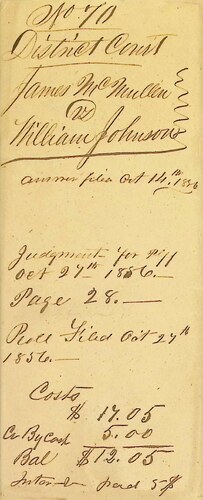 No 70
District Court
James McMullen
vs
William Johnson
answer filed Oct 14.th 1856
Judgment for Plff
Oct 27th 1856.—
Page 28.—
Roll Filed Oct 27th
1856.—
Costs
$ 17.05
Cr By Cash 5.00
Bal $12.05
paid 5$